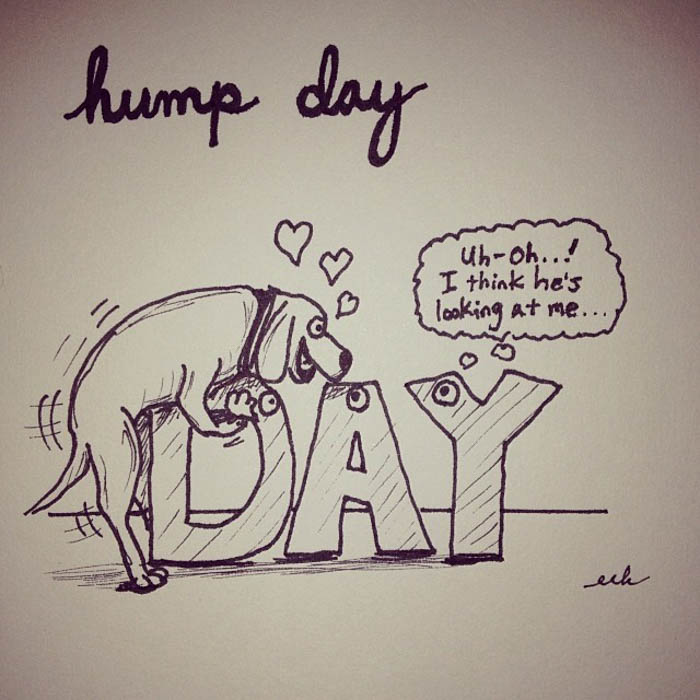 hump day
Uh-Oh...!
I think he's
looking at me...
DAY